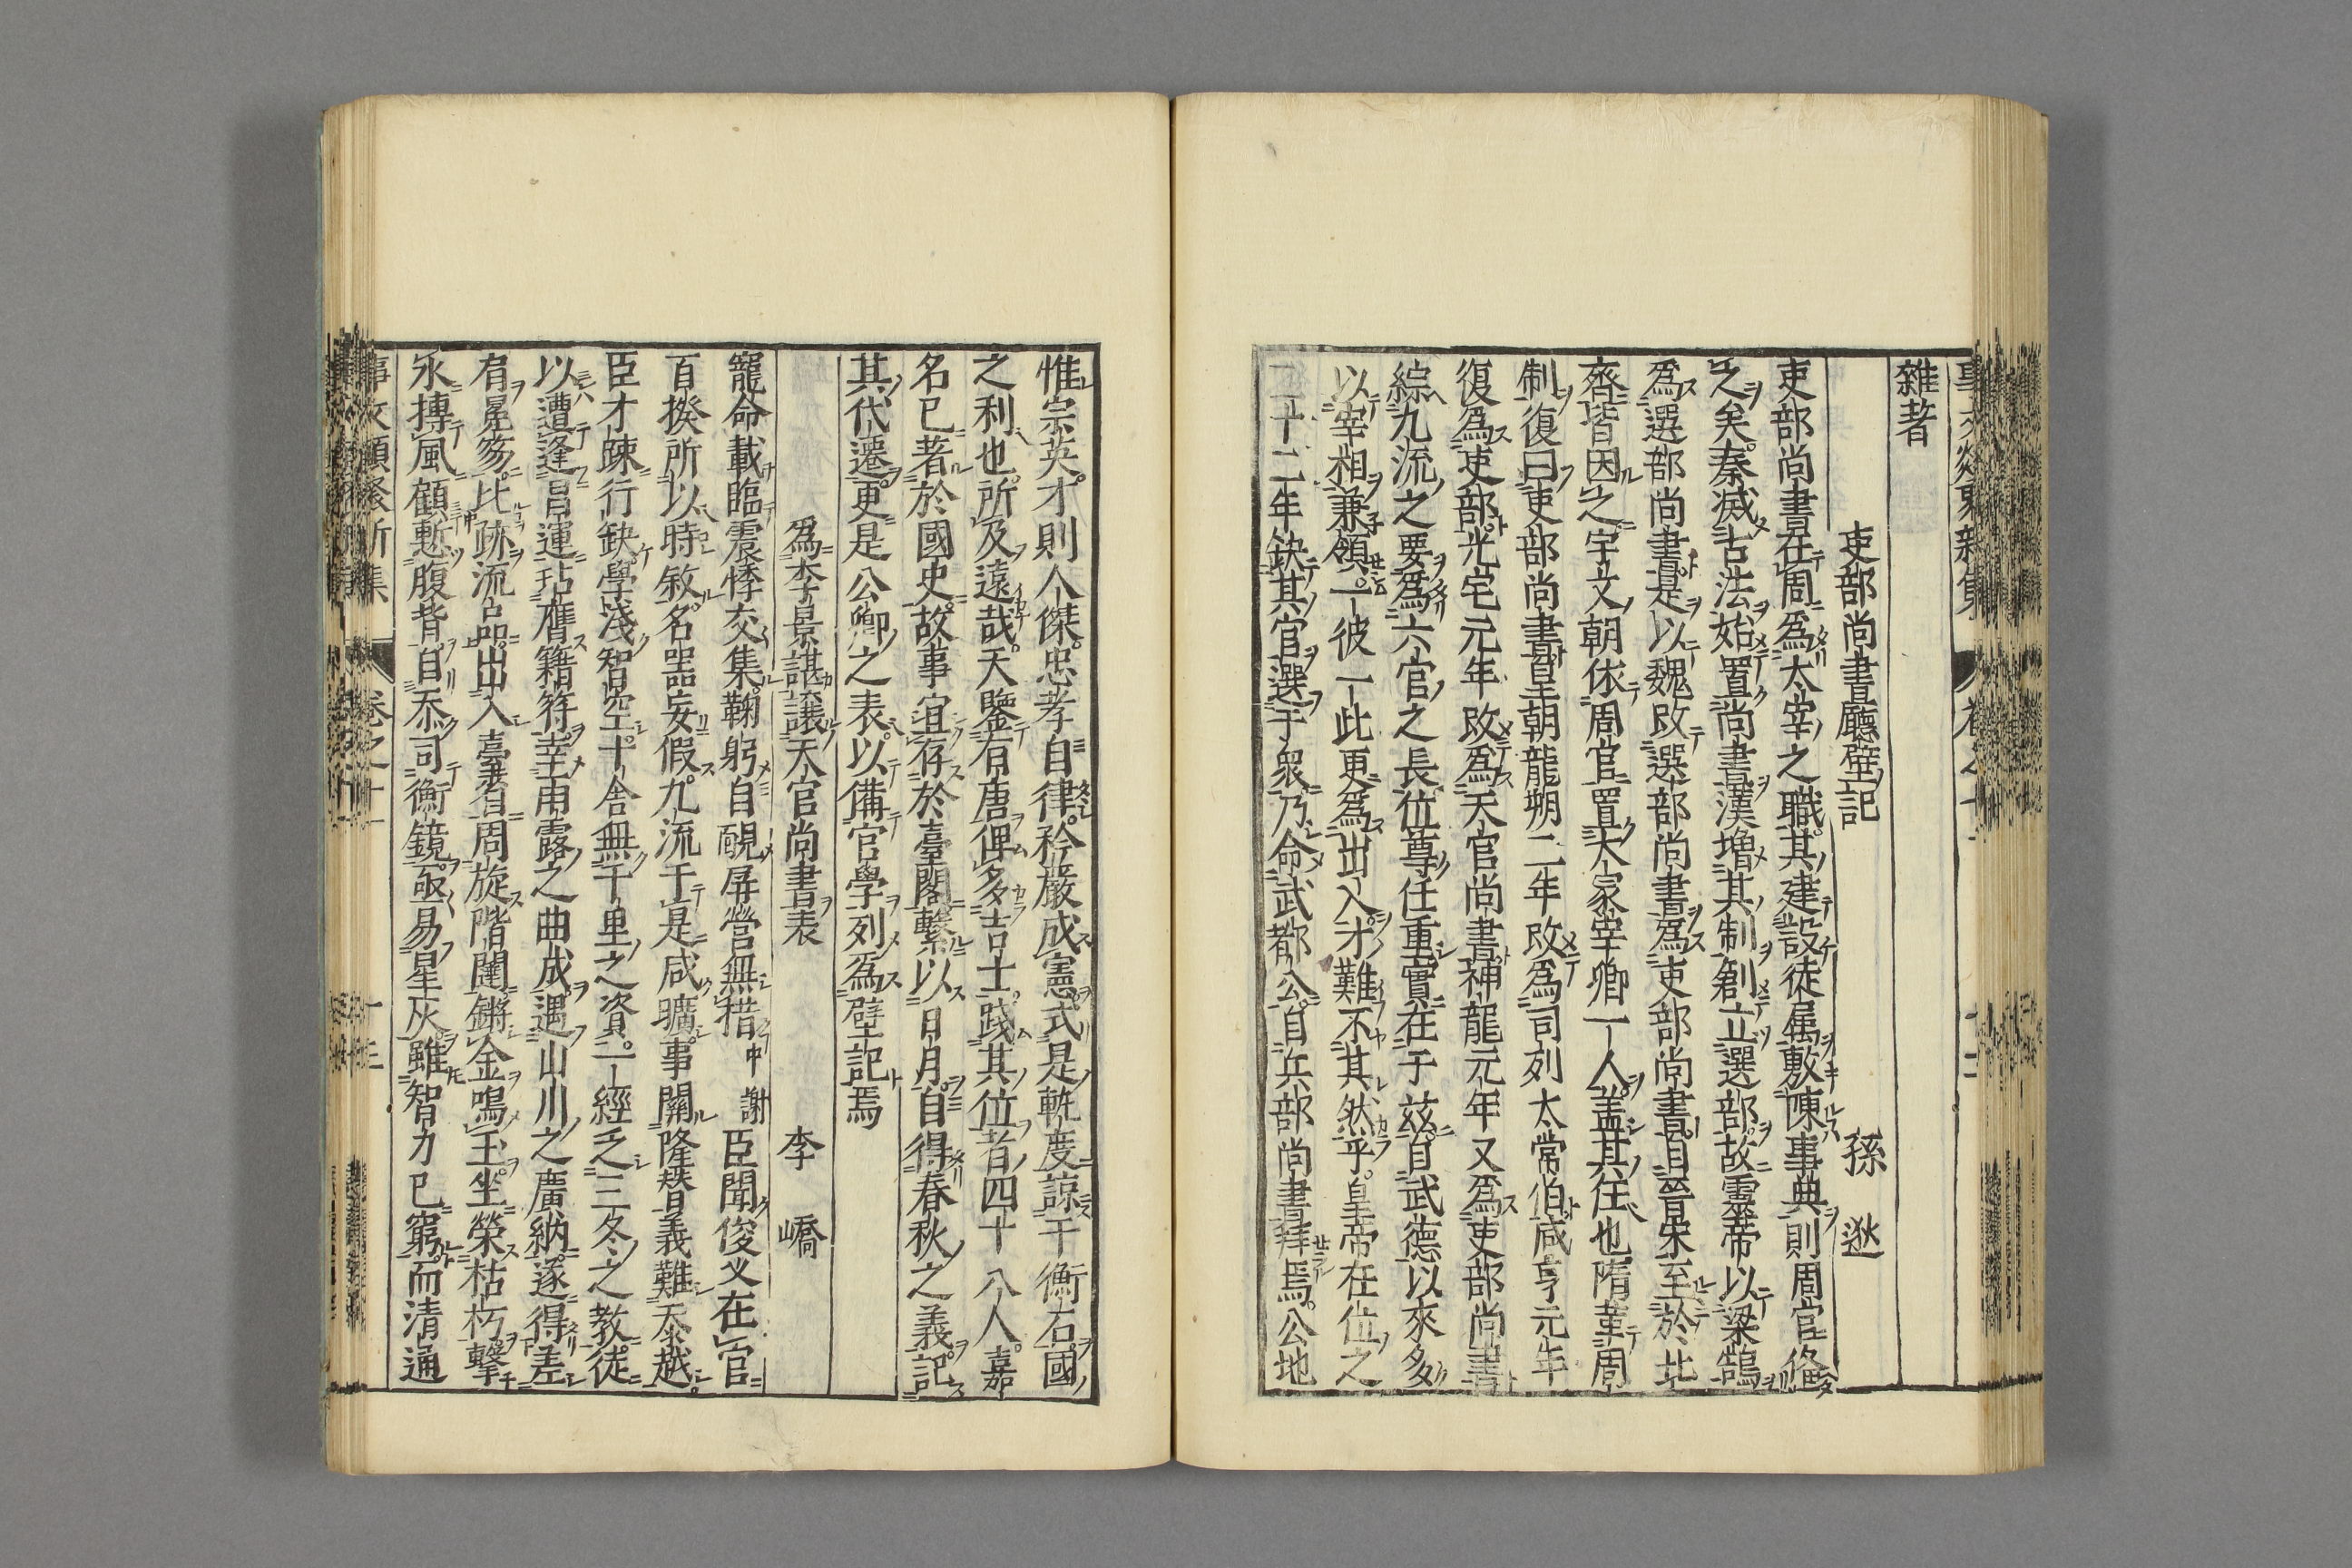 雜著
吏部尚書廳壁記 孫逖
吏部尚書在周爲太宰之職其建設徒属敷陳事典則周官俻
之矣秦滅古法始置尚書漢增其制創立選部故靈帝以梁鵠
爲選部尚書是以魏改選部尚書爲吏部尚書自晉宋至於北
齊皆因之宇文朝依周官置大冢宰卿一人盖其任也隋革周
制復曰吏部尚書皇朝龍朔二年改爲司列太常伯咸亨元年
復爲吏部光宅元年改爲天官尚書神龍元年又爲吏部尚書
綜九流之要爲六官之長位尊任重實在于兹自武德以來多
以宰相兼領一彼一此更爲出入才難不其然乎皇帝在位之
二十二年缺其官選于衆乃命武都公自兵部尚書拜焉公地
惟宗英才則人傑忠孝自律矜嚴成憲式是軌度諒干衡石國
之利也所及遠哉天鑒有唐俾多吉士踐其位者四十八人嘉
名已著於國史故事宜存於臺閣繫以日月自得春秋之義記
其代遷更是公卿之表以備官學列爲壁記焉
爲李景諶讓天官尚書表 李嶠
寵命載臨震悸交集鞠躬自覼屏營無措中謝臣聞俊乂在官
百揆所以時敘名器妄假九流于是咸曠事關隆替義難忝越
臣才踈行缺學淺智空十舍無千里之資一經乏三冬之教徒
以遭逢昌運玷膺籍符幸雨露之曲成遇山川之廣納遂得差
肩冕笏比跡流品出入臺省周旋階闥鏘金鳴玉坐榮枯朽擊
水摶風顧慙腹背自忝司衡鏡亟易星灰雖智力已窮而清通
事文類聚新集 卷之十一 十三